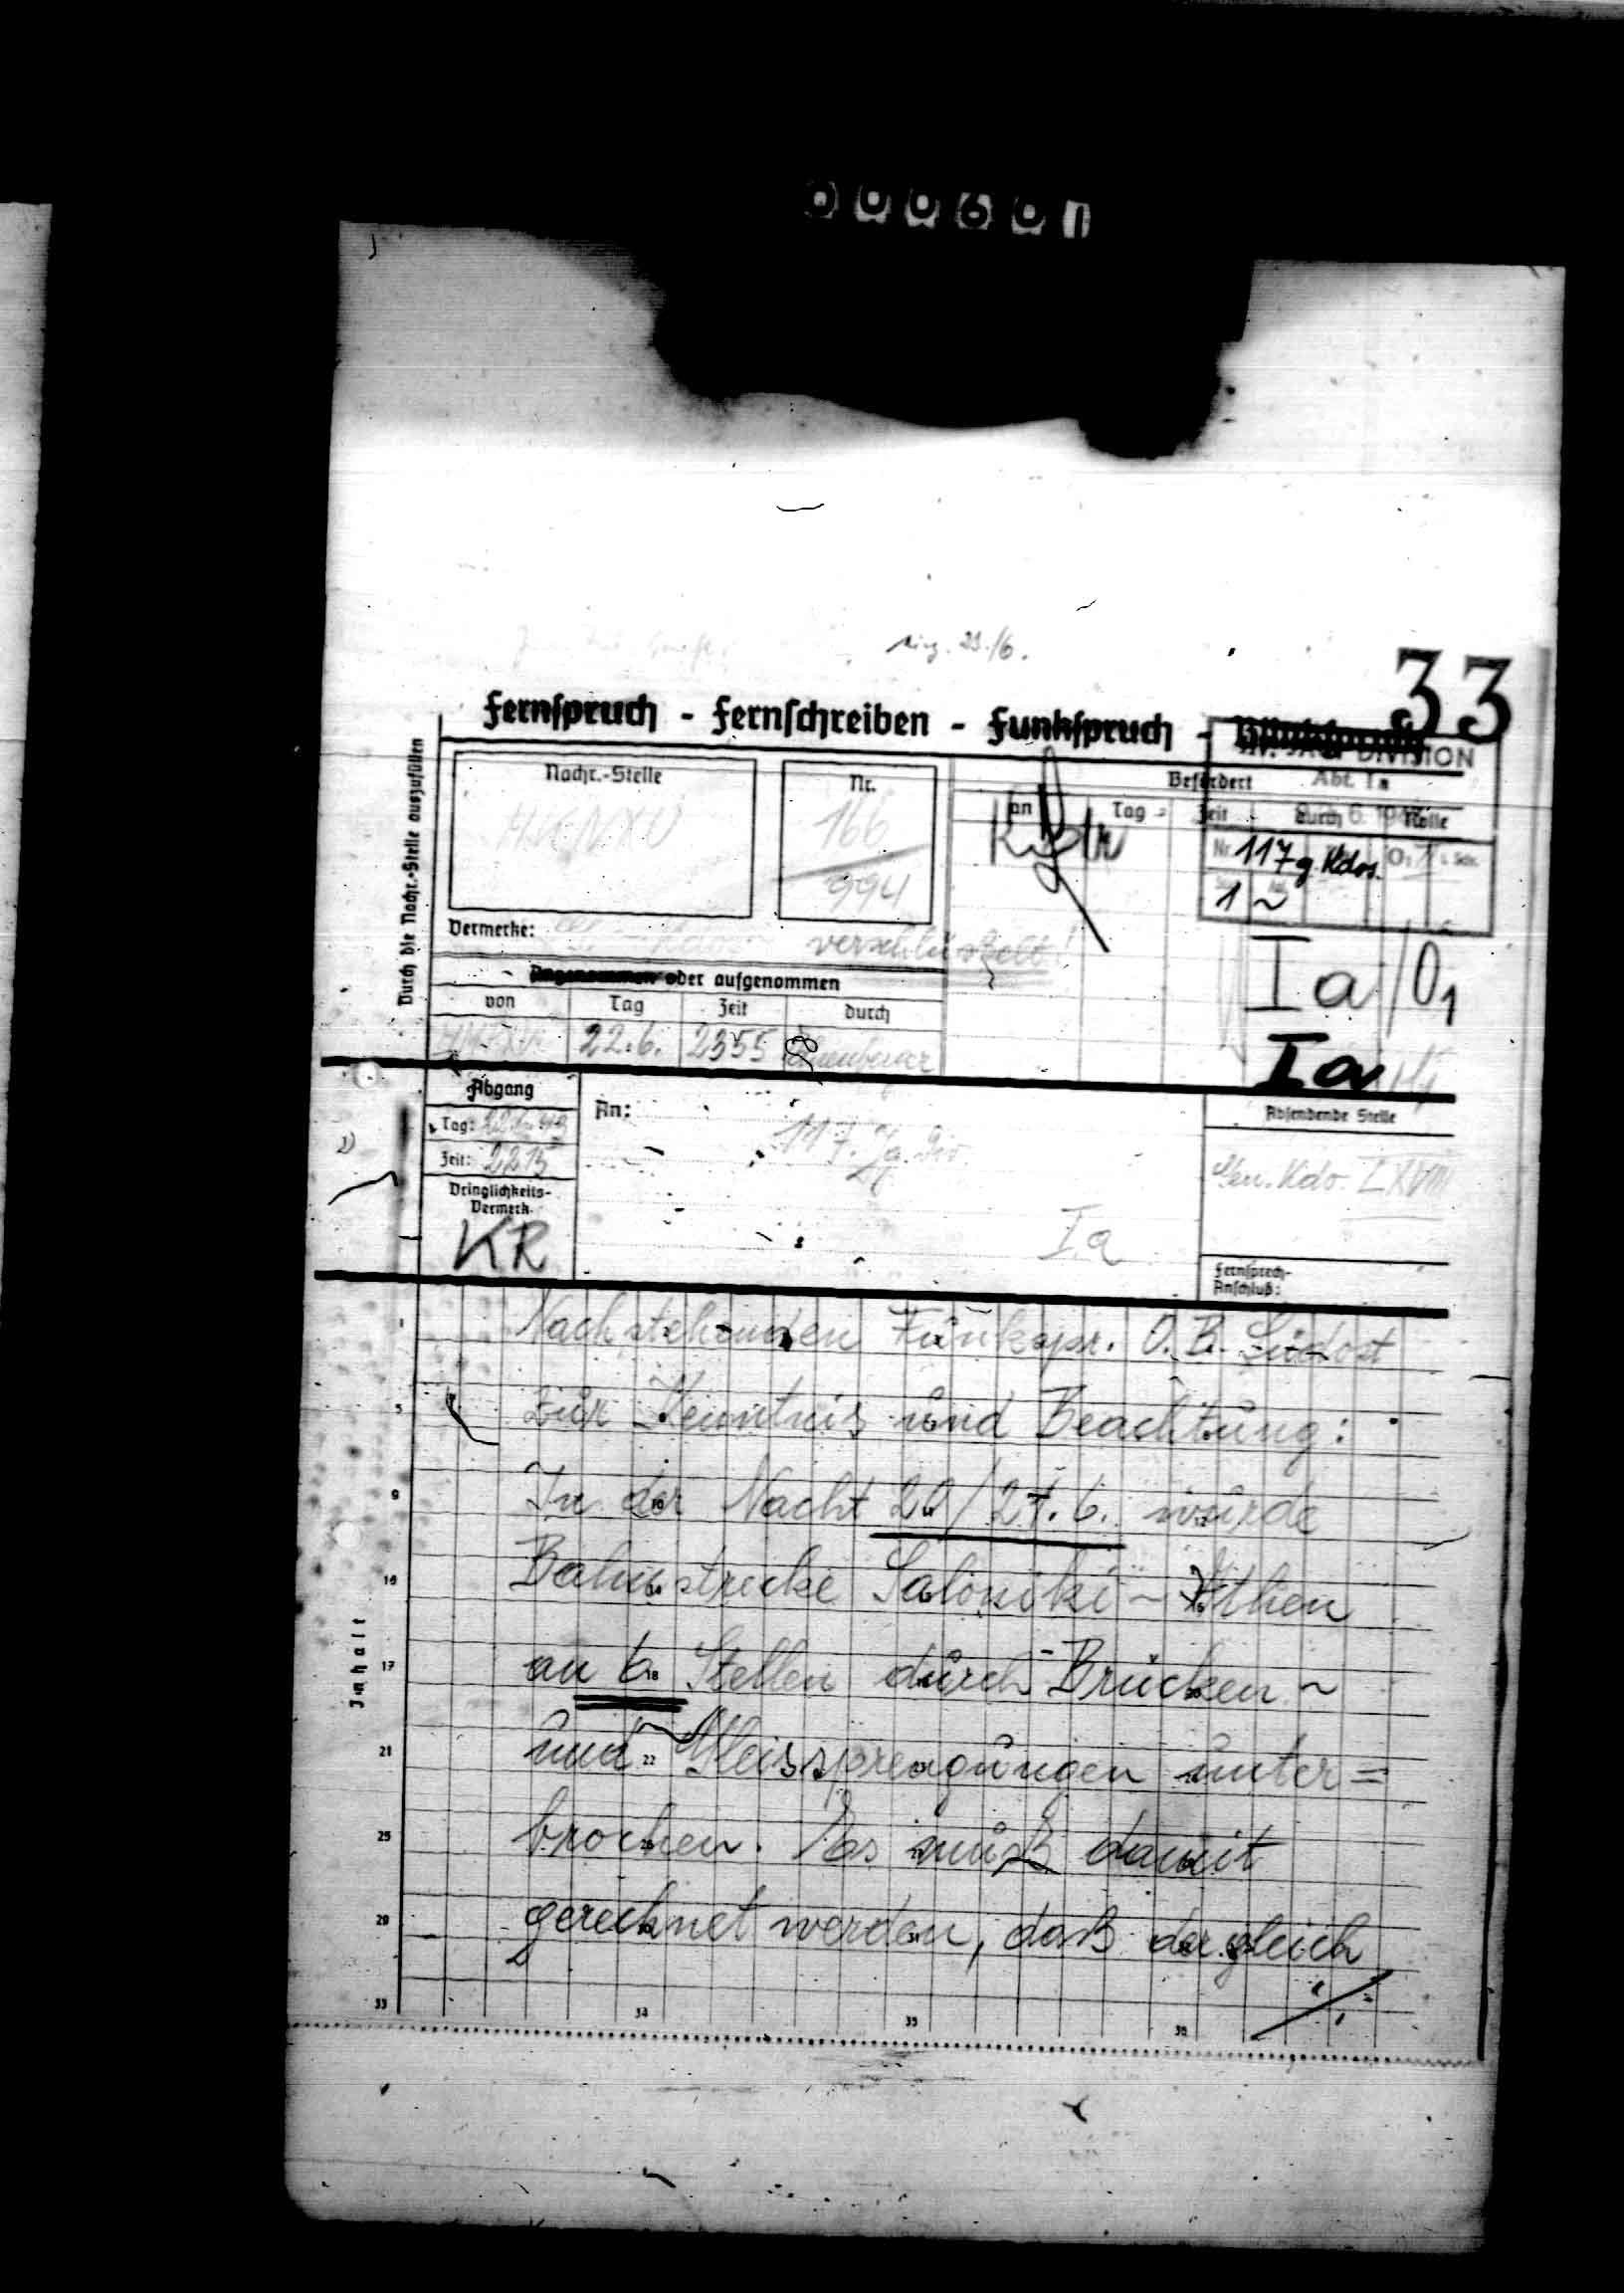 000601
33
Fernspruch - Fernschreiben - Funkspruch -
DIVISION
Abt. Ia
Durch die Nachr.-Stelle auszufüllen
Nachr.-Stelle
Nr.
166
994
Befördert
an
Tag
Zeit
durch
Rolle
Nr. 117 g. Kdos.
1
Vermerke:
verschlüsselt!
Ia/O1
Ia
oder aufgenommen
von
Tag
Zeit
durch
22.6.
2355
Abgang
Tag:
Zeit: 2215
Dringlichkeits-
Vermerk
KR
An:
117. Jg. Div.
Ia
Absendende Stelle
Gen. Kdo. LXVIII
Fernsprech-
Anschluß:
Inhalt
Nachstehenden Funkspr. O.B. Südost
zur Kenntnis und Beachtung:
In der Nacht 20/21.6. wurde
Bahnstrecke Saloniki - Athen
an 6 Stellen durch Brücken-
und Gleissprengungen unter=
brochen. Es muß damit
gerechnet werden, daß dergleich